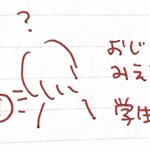 ?
おじ
みえ
学生